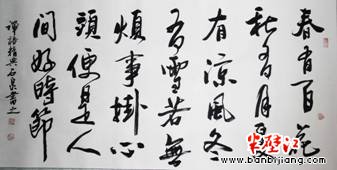 春有百花
秋有月夏
有涼風冬
有雪若無
煩事掛心
頭便是人
間好時節
禪語
書之
半壁江
www.banbijiang.com